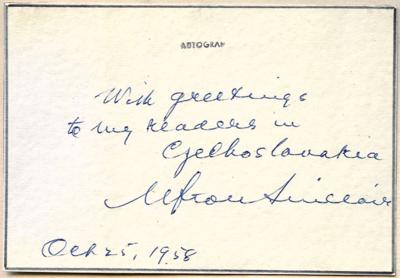 AUTOGRAM
With greetings
to my readers in
Czechoslovakia
Upton Sinclair
Oct 25, 1958